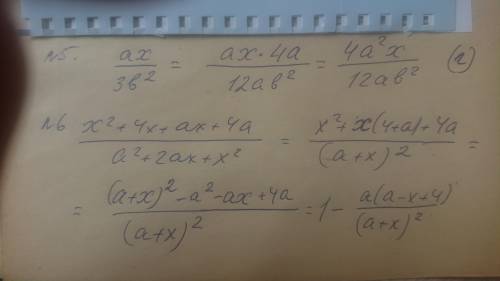 №5. ax/3b² = ax·4a/12ab² = 4a²x/12ab² (г)
№6 x²+4x+ax+4a/a²+2ax+x² = x²+x(4+a)+4a/(a+x)² =
= (a+x)²-a²-ax+4a/(a+x)² = 1- a(a-x+4)/(a+x)²